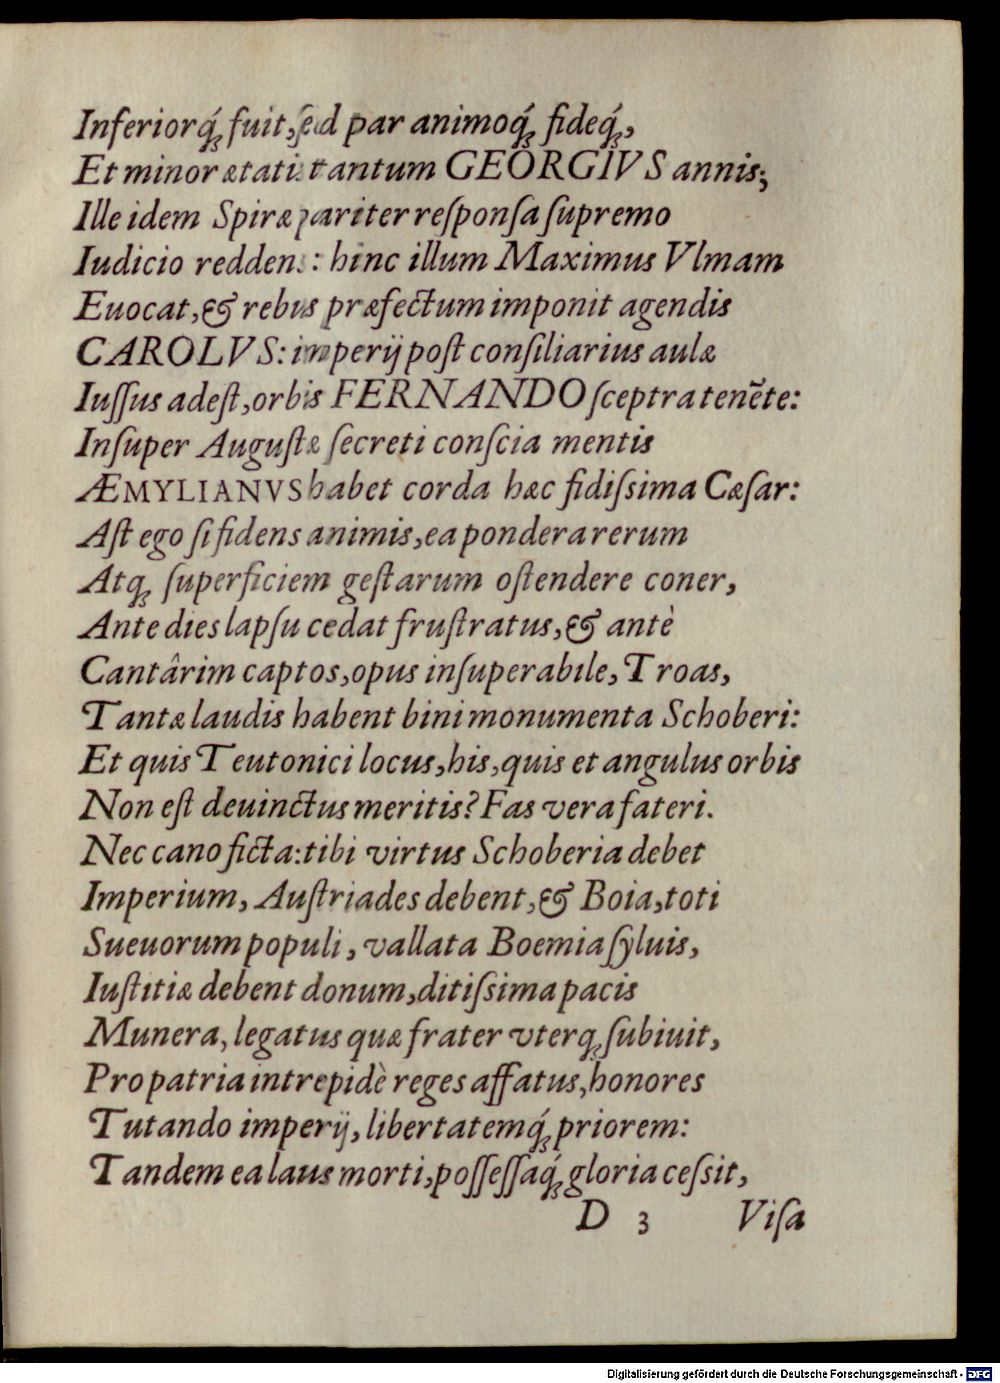 Inferiorq́ꝫ fuit, ſed par animoq́ꝫ fideq́ꝫ,
Et minor ætatis tantum GEORGIVS annis;
Ille idem Spiræ pariter reſponſa ſupremo
Iudicio reddens: hinc illum Maximus Vlmam
Euocat, & rebus præfectum imponit agendis
CAROLVS: imperij poſt conſiliarius aulæ
Iuſſus adeſt, orbis FERNANDO ſceptra tenẽte:
Inſuper Auguſtæ ſecreti conſcia mentis
ÆMYLIANVS habet corda hæc fidiſsima Cæſar:
Aſt ego ſi fidens animis, ea pondera rerum
Atqꝫ ſuperficiem geſtarum oſtendere coner,
Ante dies lapſu cedat fruſtratus, & antè
Cantârim captos, opus inſuperabile, Troas,
Tantæ laudis habent bini monumenta Schoberi:
Et quis Teutonici locus, his, quis et angulus orbis
Non eſt deuinctus meritis? Fas vera fateri.
Nec cano ficta: tibi virtus Schoberia debet
Imperium, Auſtriades debent, & Boia, toti
Sueuorum populi, vallata Boemia ſyluis,
Iuſtitiæ debent donum, ditiſsima pacis
Munera, legatus quæ frater vterqꝫ ſubiuit,
Pro patria intrepidè reges affatus, honores
Tutando imperij, libertatemq́ꝫ priorem:
Tandem ea laus morti, poſſeſſaq́ꝫ gloria ceſsit,
D 3 Viſa
Digitalisierung gefördert durch die Deutsche Forschungsgemeinschaft - DFG